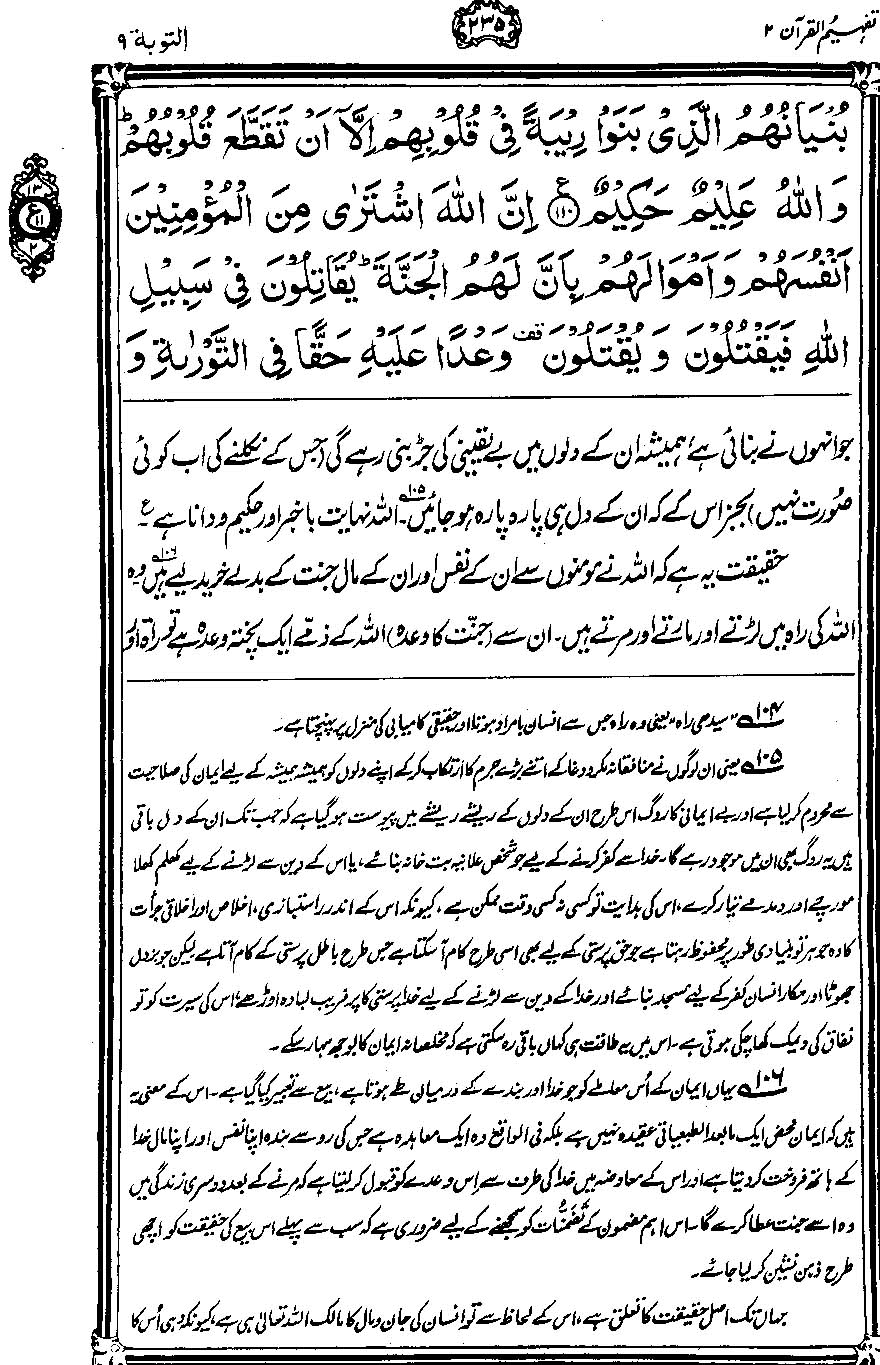 تفہیم القرآن ۲
۲۳۵
التوبۃ ۹
بُنْيَانُهُمُ الَّذِىْ بَنَوْا رِيْبَةً فِىْ قُلُوْبِهِمْ اِلَّاۤ اَنْ تَقَطَّعَ قُلُوْبُهُمْ ؕ
وَاللّٰهُ عَلِيْمٌ حَكِيْمٌ ﴿۱۱۰﴾ ع اِنَّ اللّٰهَ اشْتَرٰى مِنَ الْمُؤْمِنِيْنَ
اَنْفُسَهُمْ وَاَمْوَالَهُمْ بِاَنَّ لَهُمُ الْجَنَّةَ ؕ يُقَاتِلُوْنَ فِىْ سَبِيْلِ
اللّٰهِ فَيَقْتُلُوْنَ وَ يُقْتَلُوْنَ قف وَعْدًا عَلَيْهِ حَقًّا فِى التَّوْرٰىةِ وَ
۱۳
ع ۱۱
۲
جو انہوں نے بنائی ہے، ہمیشہ ان کے دلوں میں بے یقینی کی جڑ بنی رہے گی (جس کے نکلنے کی اب کوئی
صُورت نہیں) بجز اس کے کہ ان کے دل ہی پارہ پارہ ہو جائیں۔۱۰۵ اللہ نہایت باخبر اور حکیم و دانا ہے ع
حقیقت یہ ہے کہ اللہ نے مومنوں سے ان کے نفس اور ان کے مال جنت کے بدلے خرید لیے ہیں۱۰۶ وہ
اللہ کی راہ میں لڑتے اور مارتے اور مرتے ہیں۔ ان سے (جنّت کا وعدہ) اللہ کے ذمّے ایک پختہ وعدہ ہے توراۃ اور
۱۰۴ “سیدھی راہ” یعنی وہ راہ جس سے انسان بامراد ہوتا اور حقیقی کامیابی کی منزل پر پہنچتا ہے۔
۱۰۵ یعنی ان لوگوں نے منافقانہ مکر و دغا کے اتنے بڑے جرم کا ارتکاب کر کے اپنے دلوں کو ہمیشہ ہمیشہ کے لیے ایمان کی صلاحیت
سے محروم کر لیا ہے اور بے ایمانی کا روگ اس طرح ان کے دلوں کے ریشے ریشے میں پیوست ہو گیا ہے کہ جب تک ان کے دل باقی
ہیں یہ روگ بھی ان میں موجود رہے گا۔ خدا سے کفر کرنے کے لیے جو شخص علانیہ بت خانہ بنائے، یا اس کے دین سے لڑنے کے لیے کھلم کھلا
مورچے اور دمدمے تیار کرے، اس کی ہدایت تو کسی نہ کسی وقت ممکن ہے، کیونکہ اس کے اندر راستبازی، اخلاص اور اخلاقی جرأت
کا وہ جوہر تو بنیادی طور پر محفوظ رہتا ہے جو حق پرستی کے لیے بھی اسی طرح کام آسکتا ہے جس طرح باطل پرستی کے کام آتا ہے لیکن جو بزدل
جھوٹا اور مکار انسان کفر کے لیے مسجد بنائے اور خدا کے دین سے لڑنے کے لیے خدا پرستی کا پر فریب لبادہ اوڑھے، اس کی سیرت کو تو
نفاق کی دیمک کھا چکی ہوتی ہے۔ اس میں یہ طاقت ہی کہاں باقی رہ سکتی ہے کہ مخلصانہ ایمان کا بوجھ سہار سکے۔
۱۰۶ یہاں ایمان کے اُس معاملے کو جو خدا اور بندے کے درمیان طے ہوتا ہے، بیع سے تعبیر کیا گیا ہے۔ اس کے معنی یہ
ہیں کہ ایمان محض ایک مابعد الطبیعیاتی عقیدہ نہیں ہے بلکہ فی الواقع وہ ایک معاہدہ ہے جس کی رو سے بندہ اپنا نفس اور اپنا مال خدا
کے ہاتھ فروخت کر دیتا ہے اور اس کے معاوضہ میں خدا کی طرف سے اِس وعدے کو قبول کر لیتا ہے کہ مرنے کے بعد دوسری زندگی میں
وہ اسے جنت عطا کرے گا۔ اس اہم مضمون کے تَضَمُّنات کو سمجھنے کے لیے ضروری ہے کہ سب سے پہلے اس بیع کی حقیقت کو اچھی
طرح ذہن نشین کر لیا جائے۔
جہاں تک اصل حقیقت کا تعلق ہے، اس کے لحاظ سے تو انسان کی جان و مال کا مالک اللہ تعالیٰ ہی ہے، کیونکہ وہی اُس کا